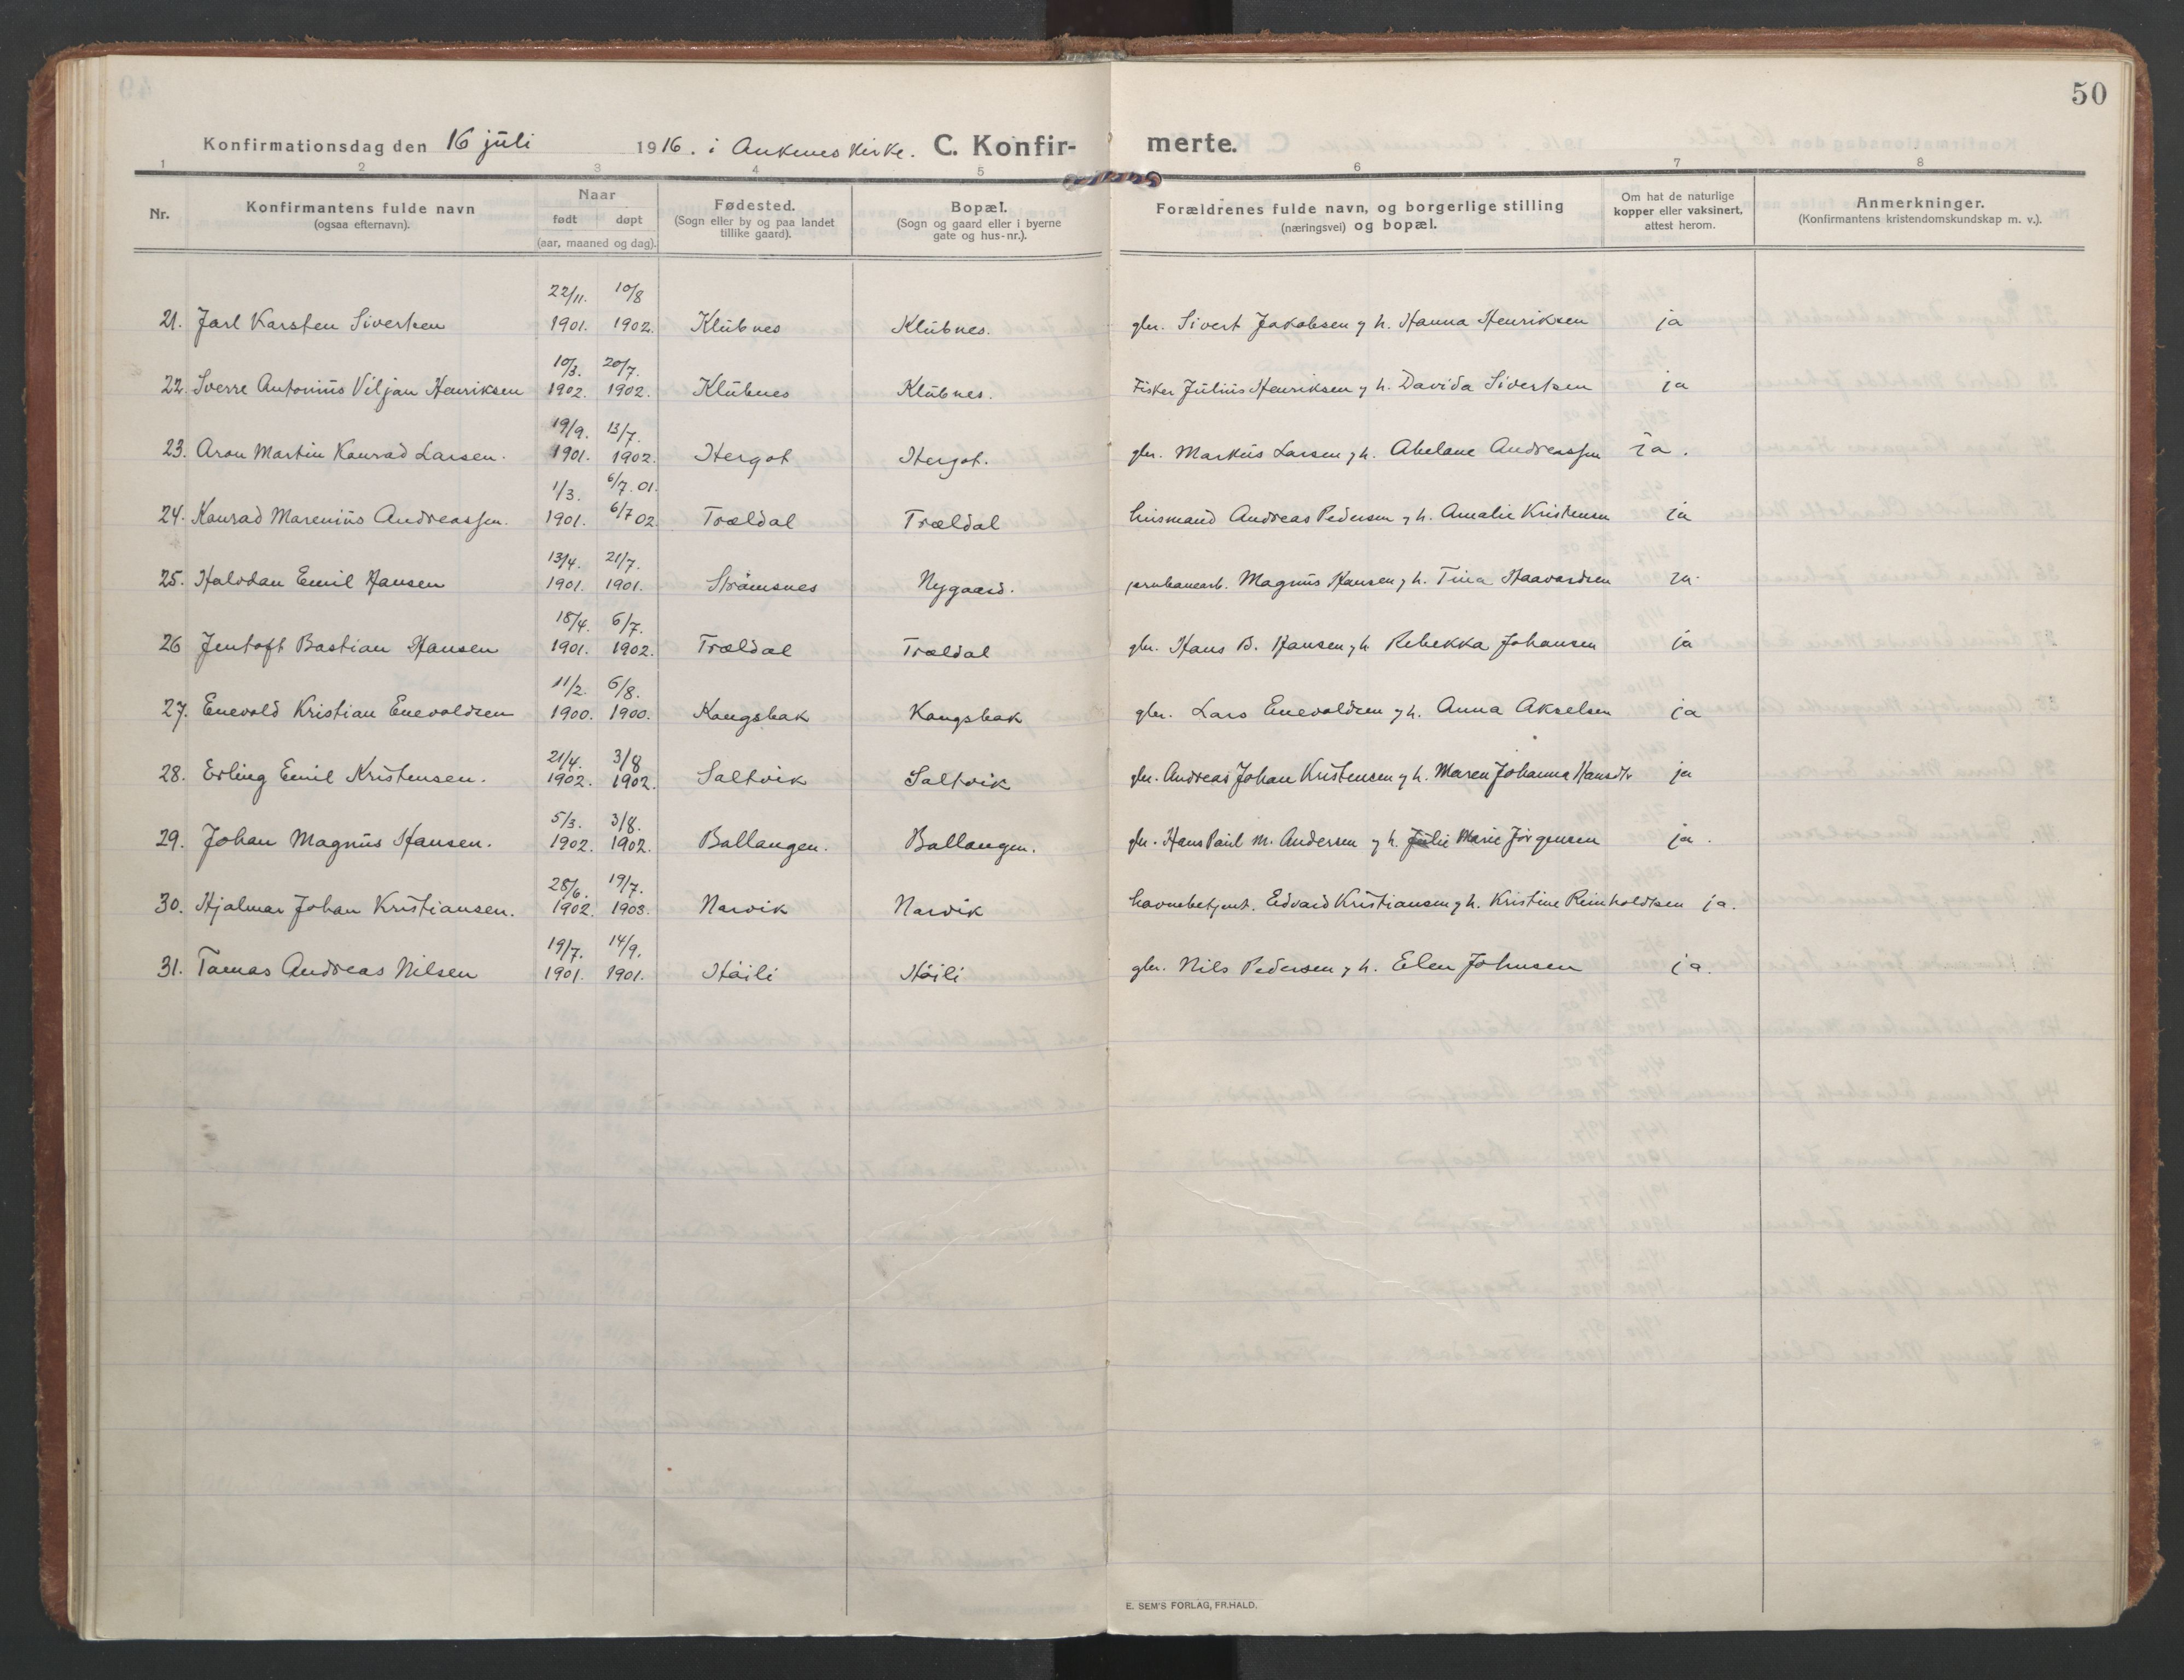 50
Konfirmationsdag den 16 juli 1916. i Ankenes Kirke. C. Konfir- merte.
1 2 3 4 5 6 7 8
Nr. Konfirmantens fulde navn (ogsaa efternavn). Naar født døpt (aar, maaned og dag). Fødested. (Sogn eller by og paa landet tillike gaard). Bopæl. (Sogn og gaard eller i byerne gate og hus-nr.). Forældrenes fulde navn, og borgerlige stilling (næringsvei) og bopæl. Om hat de naturlige kopper eller vaksinert, attest herom. Anmerkninger. (Konfirmantens kristendomskundskap m. v.).
22/11. 10/8
21. Jarl Karsten Sivertsen 1901. 1902. Klubnes Klubnes. gbr. Sivert Jakobsen og h. Hanna Henriksen ja
10/3. 20/7.
22. Sverre Antonius Viljan Henriksen 1902. 1902. Klubnes Klubnes. Fisker Julius Henriksen og h. Davida Sivertsen ja
19/9. 13/7.
23. Aron Martin Konrad Larsen. 1901. 1902. Hergot Hergot. gbr. Markus Larsen og h. Abelone Andreassen ja.
1/3. 6/7.01.
24. Konrad Marenius Andreassen. 1901. 6/7 02 Trældal Trældal husmand Andreas Pedersen og h. Amalie Kristensen ja
13/4. 21/7.
25. Halvdan Emil Hansen 1901. 1901. Strømsnes Nygaard. jernbanearb. Magnus Hansen og h. Tina Haavardsen ja
18/4. 6/7.
26 Jentoft Bastian Hansen 1901. 1902. Trældal Trældal gbr. Hans B. Hansen og h. Rebekka Johansen ja
11/2. 6/8.
27. Enevold Kristian Enevoldsen 1900. 1900. Kongsbak Kongsbak gbr. Lars Enevoldsen og h. Anna Akselsen ja
21/4. 3/8
28. Erling Emil Kristensen. 1902. 1902. Saltvik Saltvik gbr. Andreas Johan Kristensen og h. Maren Johanna Hansdtr ja
5/3. 3/8.
29. Johan Magnus Hansen. 1902. 1902. Ballangen. Ballangen. gbr. Hans Paul M. Andersen og h. Julie Marie Jørgensen ja.
28/6. 19/7.
30. Hjalmar Johan Kristiansen. 1902. 1908. Narvik Narvik havnebetjent. Edvard Kristiansen og h. Kristine Reinholdtsen ja.
19/7. 14/9.
31. Tomas Andreas Nilsen 1901. 1901. Håili Håili gbr. Nils Pedersen og h. Elen Johnsen ja.
E. SEM'S FORLAG, FR.HALD.